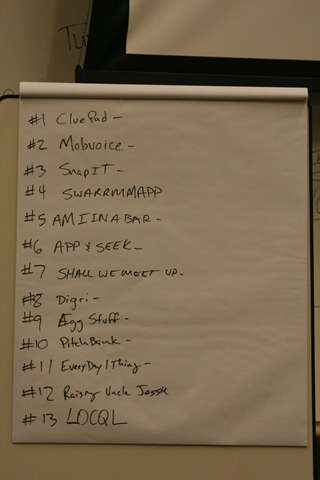 #1 CluePad -
#2 Mobvoice -
#3 SnapIT -
#4 SWARMMAPP
#5 AMIINABAR -
#6 APP & SEEK -
#7 SHALL WE MEET UP -
#8 Digri -
#9 Agg Stuff -
#10 PitchBank -
#11 EveryDay1Thing -
#12 Raising Uncle Jessie
#13 LOCQL